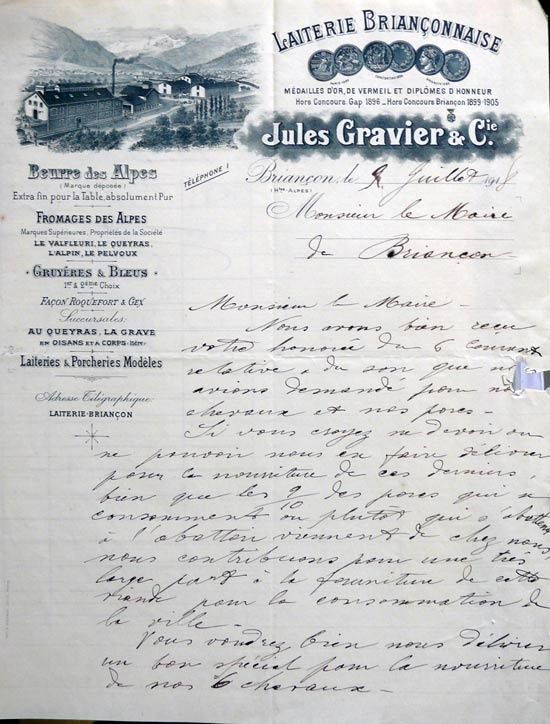 LAITERIE BRIANÇONNAISE
MÉDAILLES D'OR, DE VERMEIL ET DIPLÔMES D'HONNEUR
Hors Concours. Gap 1896 _ Hors Concours Briançon 1899-1905
Jules Gravier & Cie.
Beurre des Alpes
(Marque déposée)
Extra fin pour la Table, absolument Pur
FROMAGES DES ALPES
Marques Supérieures, Propriétés de la Société
LE VALFLEURI, LE QUEYRAS,
L'ALPIN, LE PELVOUX
GRUYÈRES & BLEUS
1er & 2ème Choix
FAÇON ROQUEFORT & GEX
Succursales:
AU QUEYRAS, LA GRAVE
EN OISANS ET A CORPS (ISÈRE)
Laiteries & Porcheries Modèles
Adresse Télégraphique:
LAITERIE-BRIANÇON
TÉLÉPHONE !
Briançon, le Juillet 1918
(Htes ALPES)
Monsieur le Maire
de Briançon
Monsieur le Maire _
Nous avons bien reçu
votre honorée du 6 courant
relative à du son que
avions demandé pour
chevaux et nos porcs _
Si vous croyez ne devoir ou
ne pouvoir nous en faire délivrer
pour la nourriture de ces derniers,
bien que les 9/10 des porcs qui se
consomment ou plutôt qui s'abattent
à l'abattoir viennent de chez nous
nous contribuons pour une très
large part à la fourniture de cette
viande pour la consommation de
la ville _
Vous voudrez bien nous délivrer
un bon spécial pour la nourriture
de nos 6 chevaux _